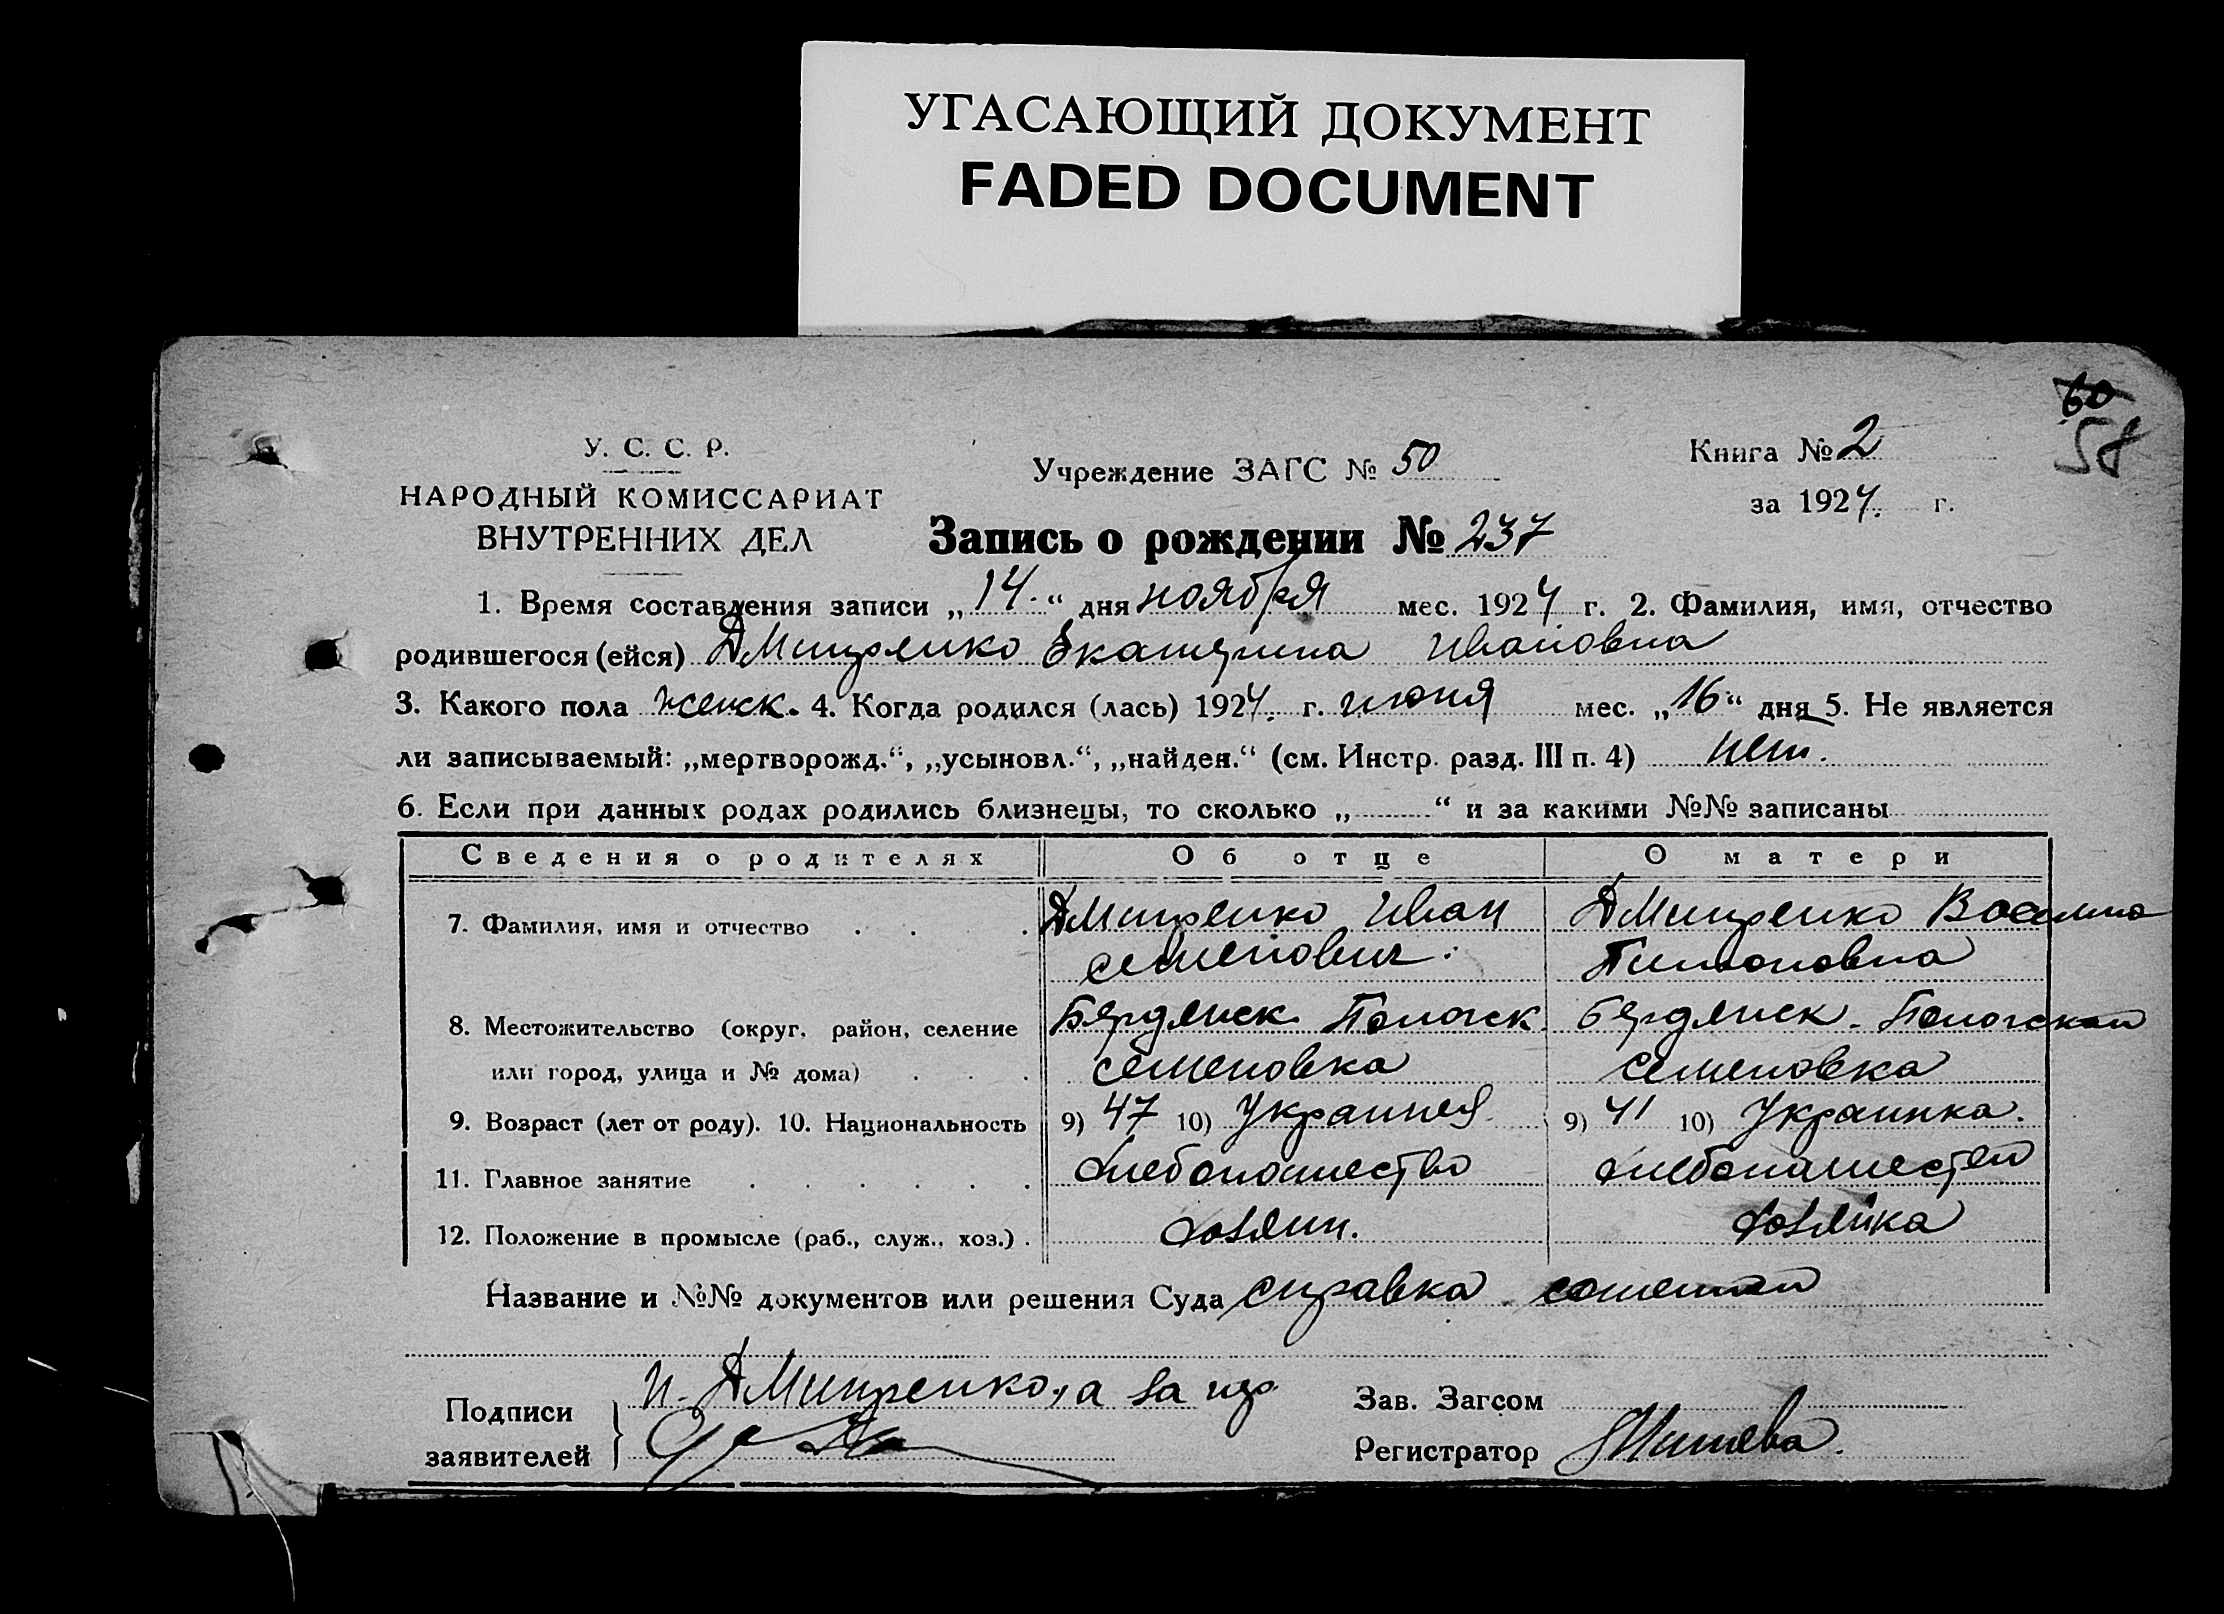 УГАСАЮЩИЙ ДОКУМЕНТ
FADED DOCUMENT
60
58
У. С. С. Р.
НАРОДНЫЙ КОМИССАРИАТ
ВНУТРЕННИХ ДЕЛ
Учреждение ЗАГС № 50
Книга № 2
за 1924. г.
Запись о рождении № 237
1. Время составления записи „14.“ дня ноября мес. 1924 г. 2. Фамилия, имя, отчество
родившегося (ейся) Дмитренко Екатерина Ивановна
3. Какого пола женск. 4. Когда родился (лась) 1924. г. июня мес. „16“ дня 5. Не является
ли записываемый: „мертворожд.“, „усыновл.“, „найден.“ (см. Инстр. разд. III п. 4) нет.
6. Если при данных родах родились близнецы, то сколько „ “ и за какими №№ записаны
Сведения о родителях Об отце О матери
7. Фамилия, имя и отчество Дмитренко Иван Дмитренко
Семенович
8. Местожительство (округ, район, селение Бердянск. Пологск. Бердянск. Пологский
или город, улица и № дома) Семеновка Семеновка
9. Возраст (лет от роду). 10. Национальность 9) 47 10) 9) 41 10) Украинка.
11. Главное занятие хлебопашество
12. Положение в промысле (раб., служ., хоз.) хозяин. хозяйка
Название и №№ документов или решения Суда справка
И. Дмитренко, а за
Подписи
заявителей
Зав. Загсом
Регистратор